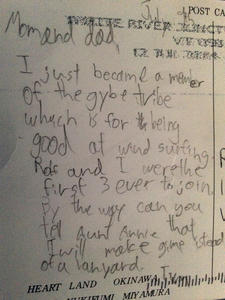 July
POST CA
WHITE RIVER JUNCT
VT 050
Mom and dad,
I just became a member
of the gybe tribe
which is for being
good at wind surfing.
Rob and I were the
first 3 ever to join
By the way can you
tell aunt Annie that
I will make gimp istead
of a lanyard.
HEART LAND OKINAWA
YUKIFUMI MIYAMURA